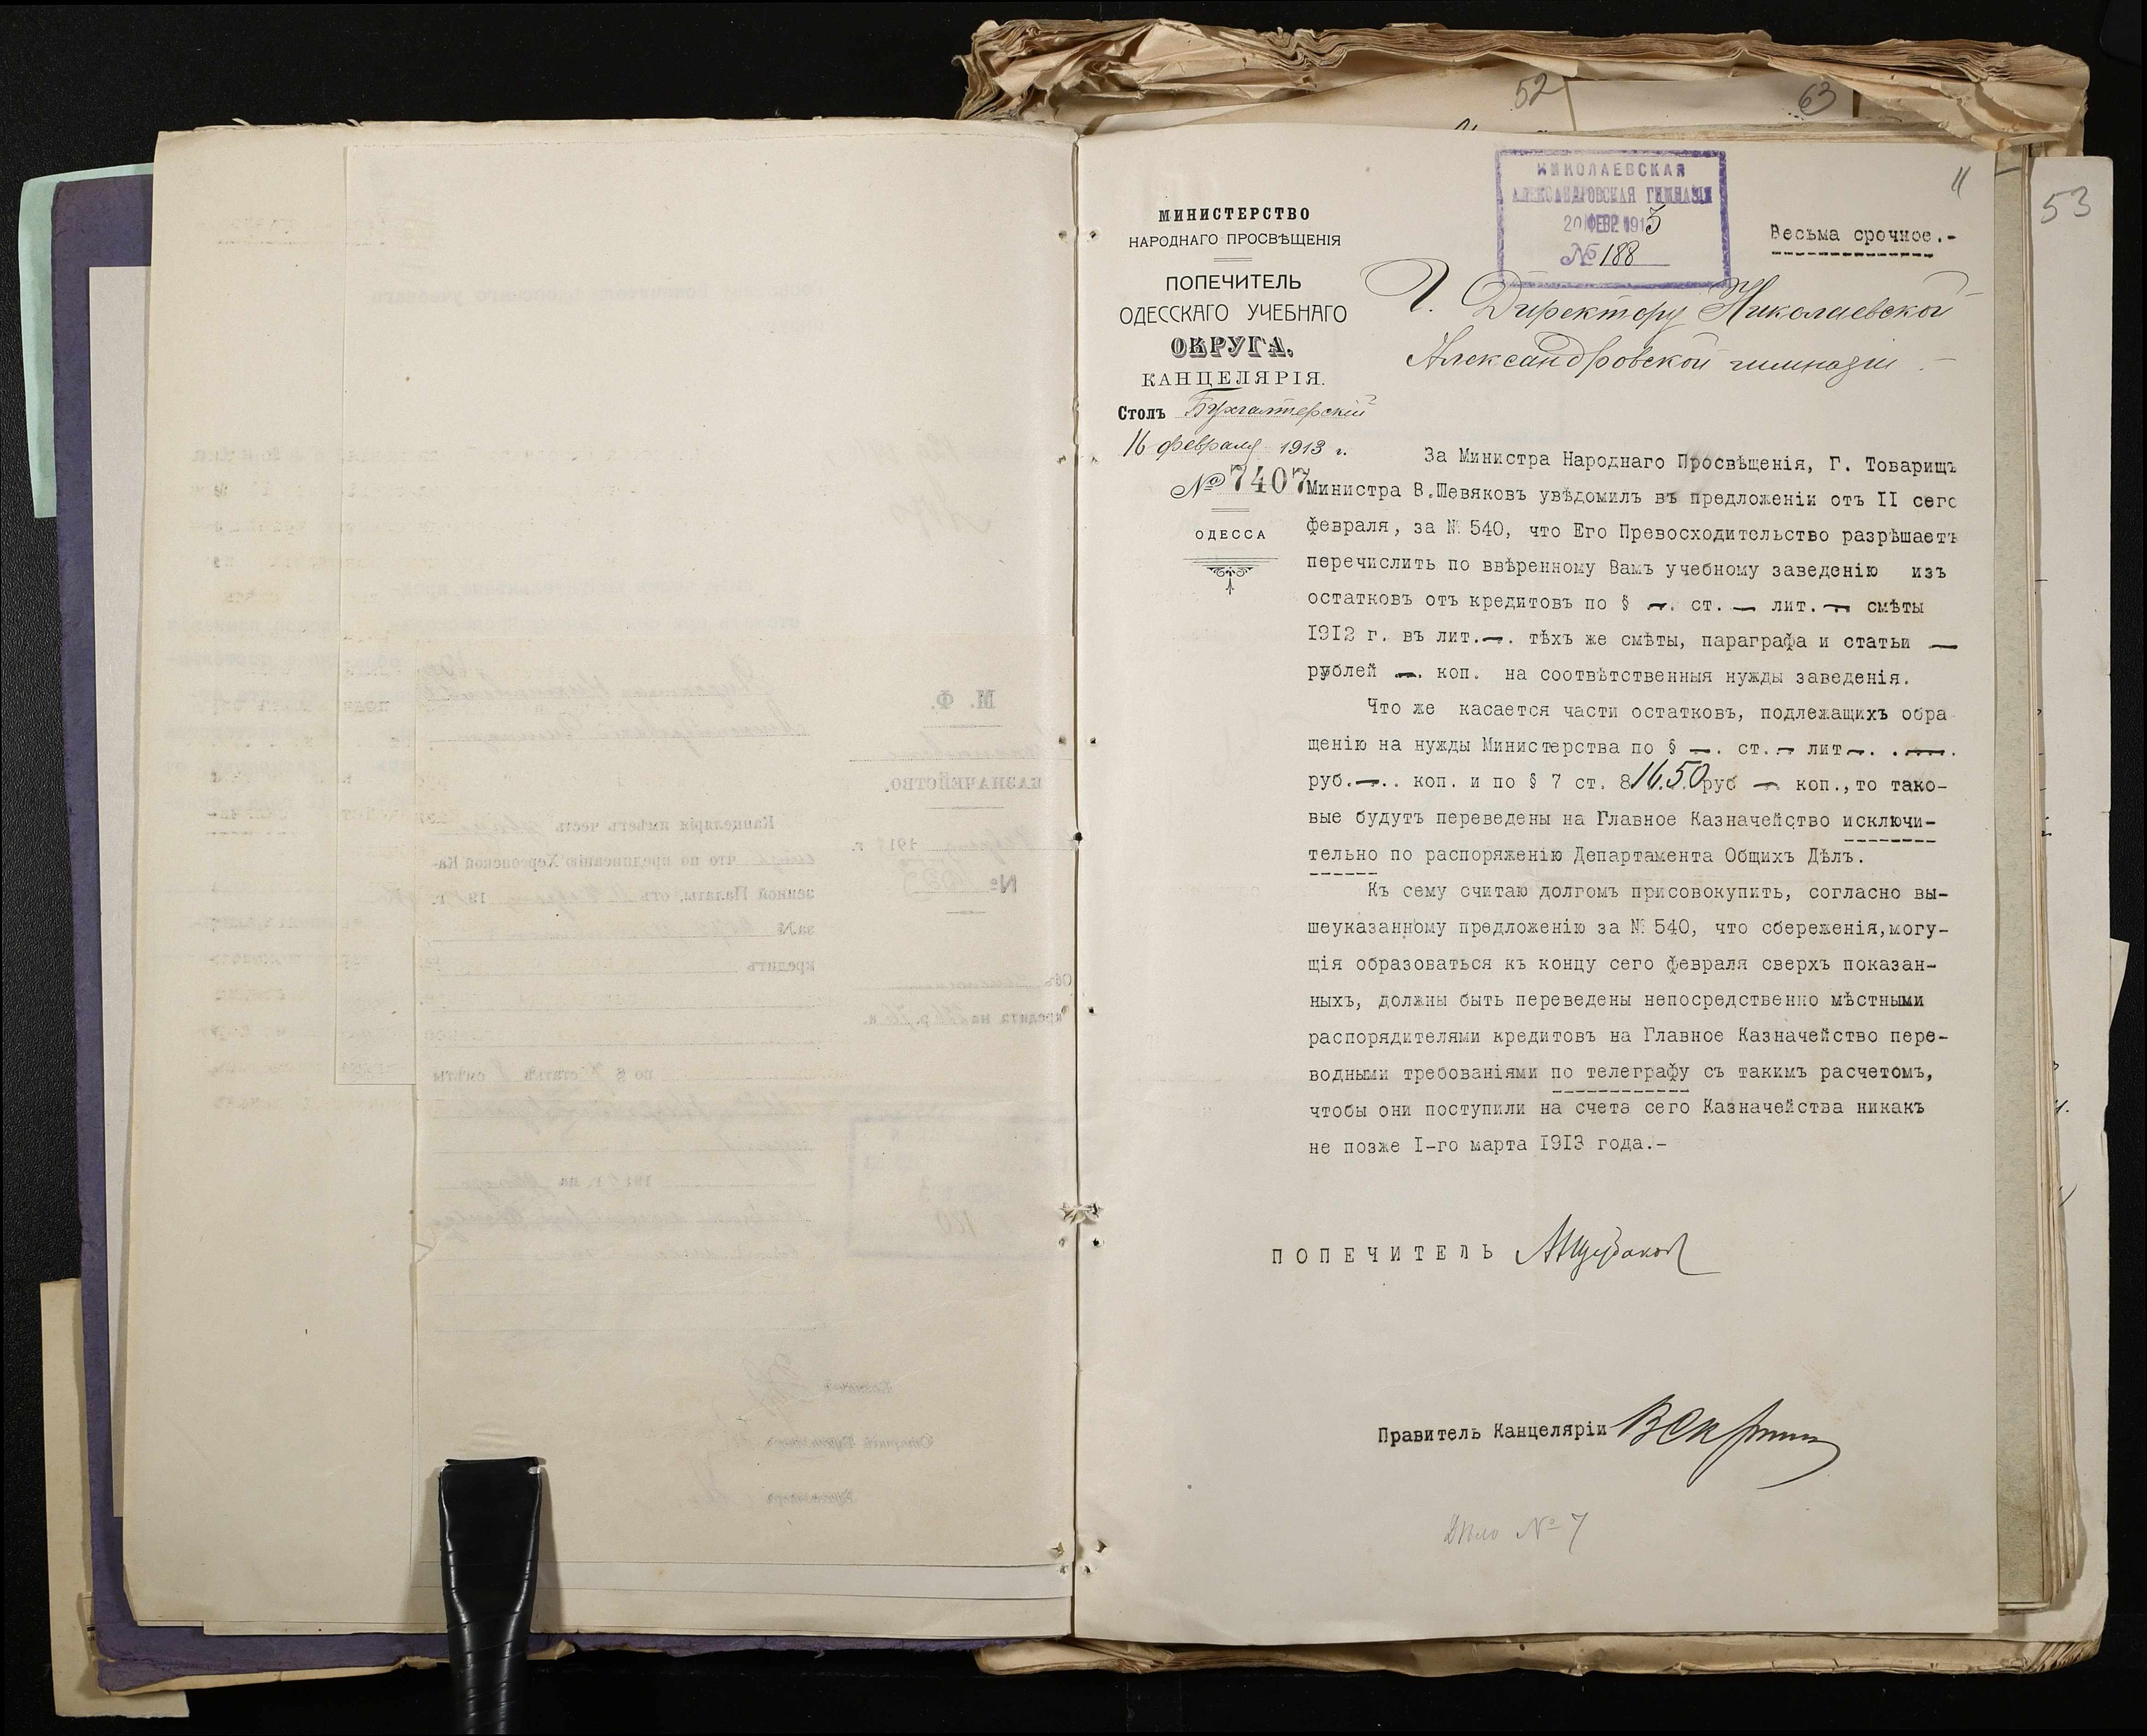 52
63
53
11
НИКОЛАЕВСКАЯ
АЛЕКСАНДРОВСКАЯ ГИМНАЗІЯ
20 ФЕВР. 1913
№ 188
Весьма срочное.-
МИНИСТЕРСТВО
НАРОДНАГО ПРОСВѢЩЕНІЯ
ПОПЕЧИТЕЛЬ
ОДЕССКАГО УЧЕБНАГО
ОКРУГА.
КАНЦЕЛЯРІЯ.
Столъ Бухгалтерскій
16 февраля 1913 г.
№ 7407
ОДЕССА
Г. Директору Николаевской
Александровской гимназіи
За Министра Народнаго Просвѣщенія, Г. Товарищъ
Министра В.Шевяковъ увѣдомилъ въ предложеніи отъ II сего
февраля, за № 540, что Его Превосходительство разрѣшаетъ
перечислить по ввѣренному Вамъ учебному заведенію изъ
остатковъ отъ кредитовъ по § —. ст. — лит. — смѣты
1912 г. въ лит.—. тѣхъ же смѣты, параграфа и статьи —
рублей —. коп. на соотвѣтственныя нужды заведенія.
Что же касается части остатковъ, подлежащихъ обра
щенію на нужды Министерства по § —. ст.— лит—. .—.
руб.—.. коп. и по § 7 ст. 8 16.50 руб — коп.,то тако-
вые будутъ переведены на Главное Казначейство исключи-
тельно по распоряженію Департамента Общихъ Дѣлъ.
Къ сему считаю долгомъ присовокупить, согласно вы-
шеуказанному предложенію за № 540, что сбереженія,могу-
щія образоваться къ концу сего февраля сверхъ показан-
ныхъ, должны быть переведены непосредственно мѣстными
распорядителями кредитовъ на Главное Казначейство пере-
водными требованіями по телеграфу съ такимъ расчетомъ,
чтобы они поступили на счета сего Казначейства никакъ
не позже I-го марта 1913 года.-
ПОПЕЧИТЕЛЬ
Правитель Канцеляріи
Дѣло № 7